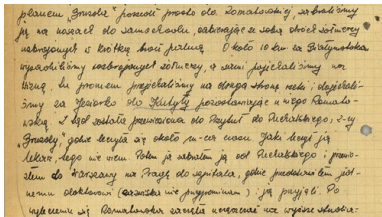 planem "Gwozda" pomóść prosto do Romatowskiej zabraliśmy
ją na nosach do samochodu, zabierając ze sobą dwóch żołnierzy
uzbrojonych w krótką broń palną. Około 10 km za Białymstoku
wysadziliśmy uzbrojonych żołnierzy, a sami pojechaliśmy na
Wizną, tu promem przejechaliśmy na drugą stronę rzeki i dojechali-
śmy za Jeziorko do Kubyty pozostawiając u niego Romato-
wską. Z kąd została przewieziona do Przytuł do Pucharskiego, z-cy
"Gwozdy", gdzie leczyła się około m-ca czasu. Jaki leczył ją
lekarz, tego nie wiem. Potem ja zabrałem ją od Pucharskiego i przewio-
złem do Warszawy na Pragę do szpitala, gdzie przedstawiłem jed-
nemu doktorowi (nazwiska nie przypominam) i ją przyjęli. Po
wyleczeniu się Romatowska zaczęła uczęszczać na wyższe studia-